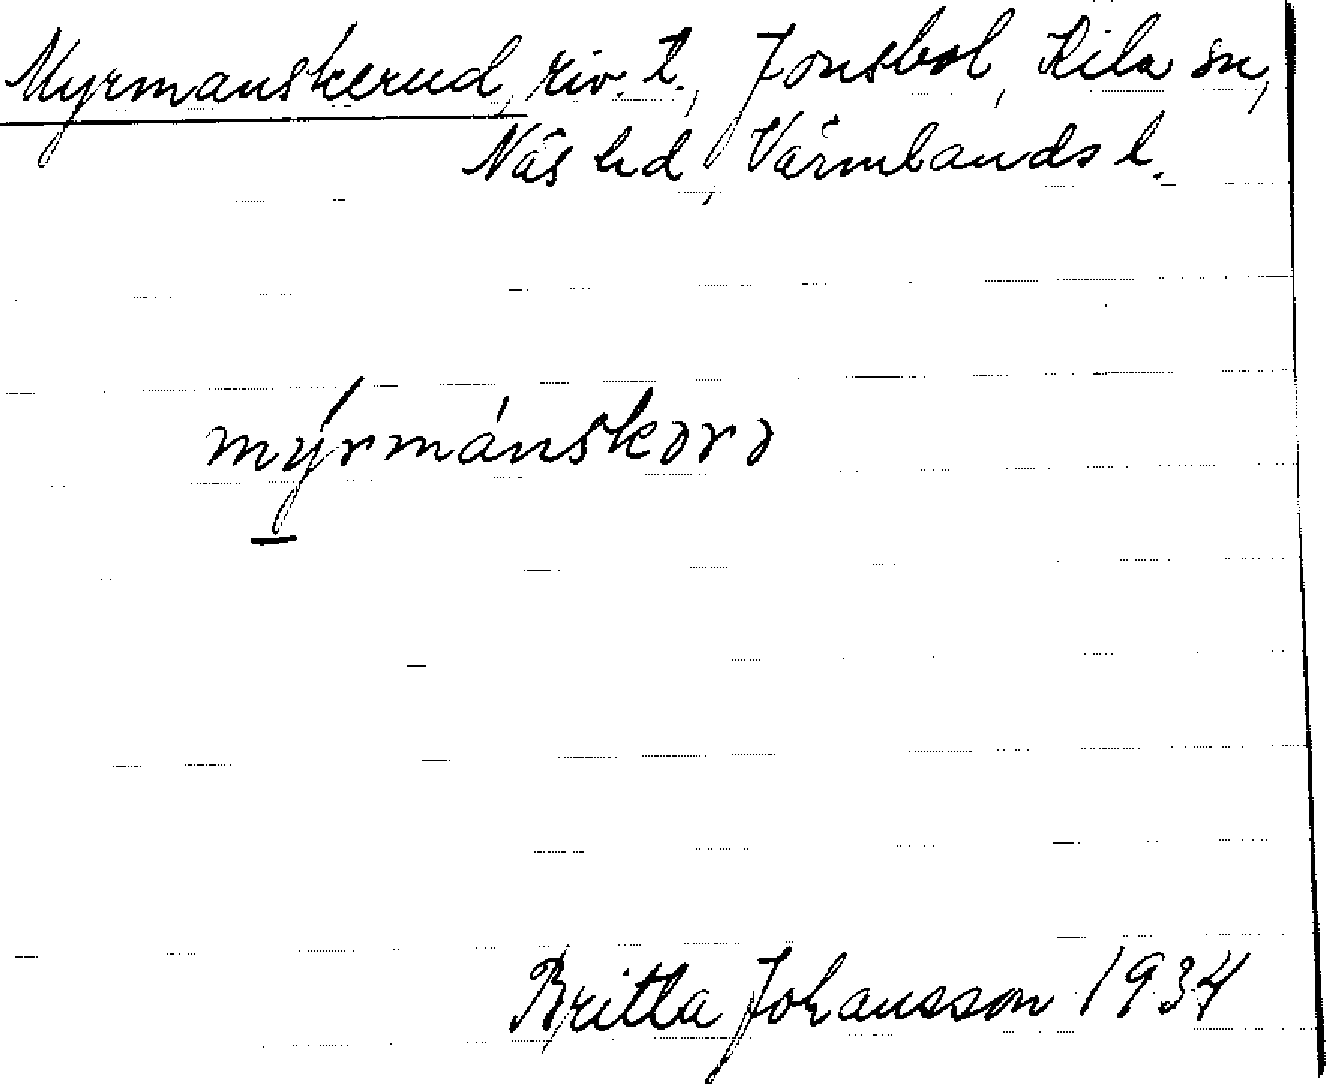 Myrmanskerud, riv. t., Jonsbol, Kila sn,
Näs hd, Värmlands l.
mýrmánskərə
Britta Johansson 1934